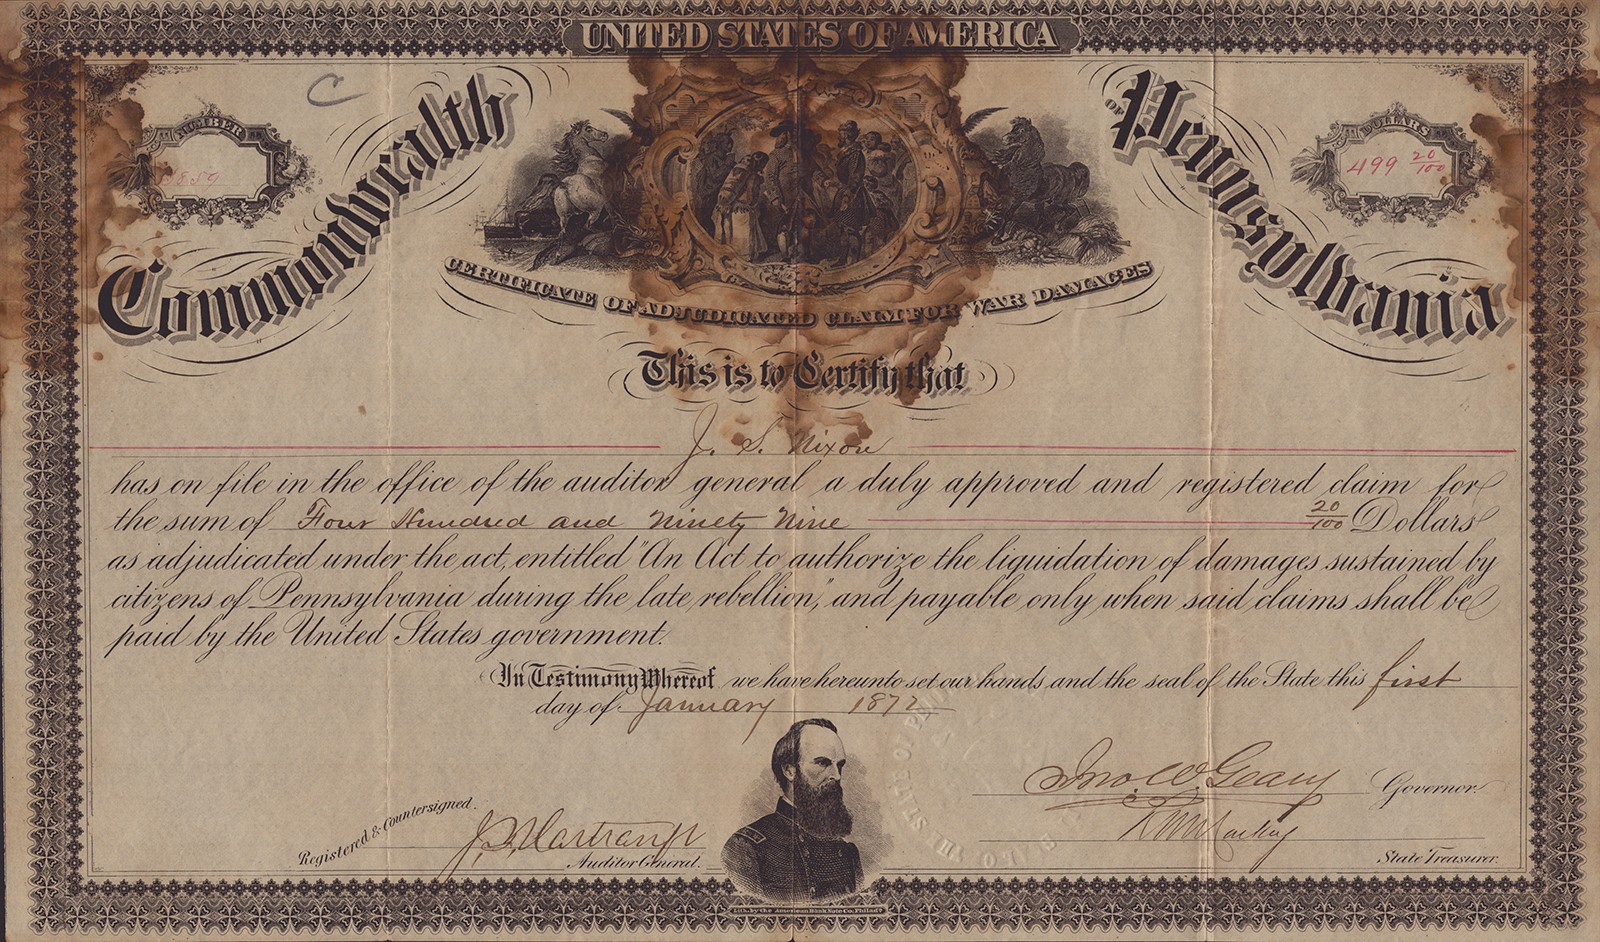 UNITED STATES OF AMERICA
C
Commonwealth Pennsylvania
NUMBER
DOLLARS
499 20/100
CERTIFICATE OF ADJUDICATED CLAIM FOR WAR DAMAGES
This is to Certify that
J. S. Nixon
has on file in the office of the auditor general a duly approved and registered claim for
the sum of Four Hundred and Ninety Nine 20/100 Dollars
as adjudicated under the act, entitled "An Act to authorize the liquidation of damages sustained by
citizens of Pennsylvania during the late rebellion," and payable only when said claims shall be
paid by the United States government.
In Testimony Whereof we have hereunto set our hands and the seal of the State this first
day of January 1872
Jno. W. Geary Governor.
Registered & Countersigned.
J. F. Hartranft
Auditor General.
R W Mackey
State Treasurer.
Lith. by the American Bank Note Co. Philada.